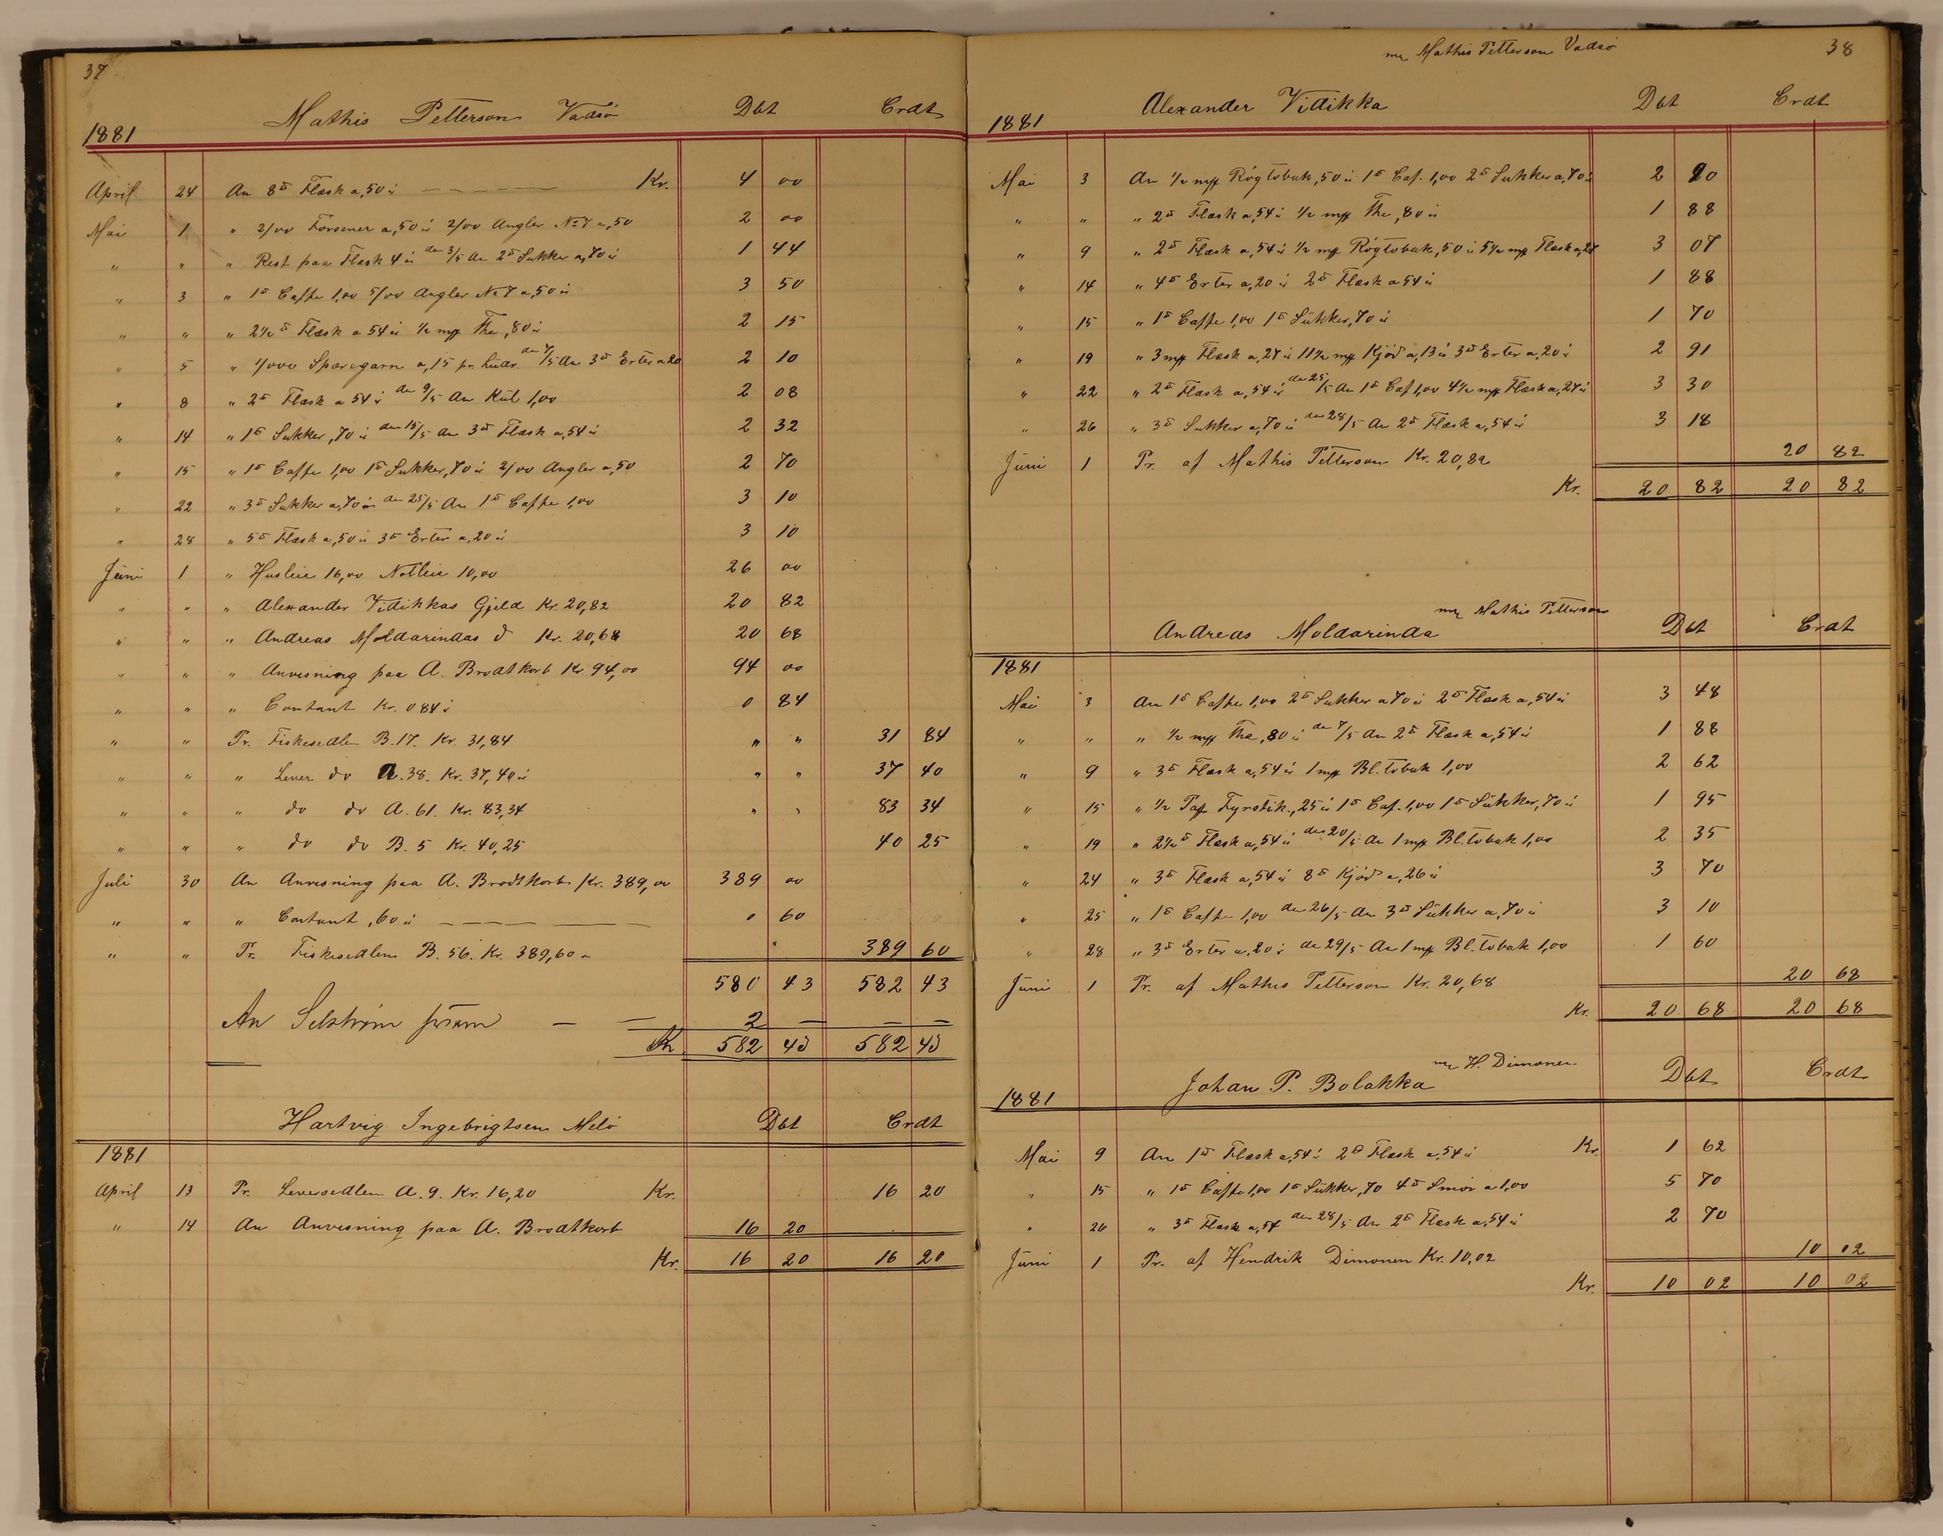 37
Mathis Petterson Vadsø Dbt Crdt
1881
April 24 An 8 ℔ Flæsk a ,50 ü Kr. 4 00
Mai 1 " 2/00 Forsener a ,50 ü 2/00 Angler No 7 a ,50 2 00
" " " Rest paa Flæsk 4 ü den 3/5 An 2 ℔ Sukker a ,70 ü 1 44
" 3 " 1 ℔ Caffe 1,00 5/00 Angler No 7 a ,50 ü 3 50
" " " 2 1/2 ℔ Flæsk a 54 ü 1/2 mk The ,80 ü 2 15
" 5 " 1/000 Sparegarn a ,15 pr. hudr. den 7/5 An 3 ℔ Erter a 20 2 10
" 8 " 2 ℔ Flæsk a 54 ü den 9/5 An Kul 1,00 2 08
" 14 " 1 ℔ Sukker ,70 ü den 15/5 An 3 ℔ Flæsk a ,54 ü 2 32
" 15 " 1 ℔ Caffe 1,00 1 ℔ Sukker ,70 ü 2/00 Angler a ,50 2 70
" 22 " 3 ℔ Sukker a ,70 ü den 25/5 An 1 ℔ Caffe 1,00 3 10
" 28 " 5 ℔ Flæsk a ,50 ü 3 ℔ Erter a ,20 ü 3 10
Juni 1 " Husleie 16,00 Notleie 10,00 26 00
" " " Alexander Vidikkas Gjeld Kr. 20,82 20 82
" " " Andreas Moldarindas d Kr. 20,68 20 68
" " " Anvisning paa A. Brodtkorb Kr 94,00 94 00
" " " Contant Kr. 0 84 ü 0 84
" " Pr. Fiskesedlen B. 17. Kr. 31,84 " " 31 84
" " " Lever do A. 38. Kr. 37,40 ü " " 37 40
" " " do do A. 61. Kr. 83,34 " " 83 34
" " " do do B. 5 Kr. 40,25 40 25
Juli 30 An Anvisning paa A. Brodtkorb Kr. 389,00 389 00
" " " Contant ,60 ü 0 60
" " Pr. Fiskesedlen B. 56. Kr. 389,60 " 389 60
580 43 582 43
An 2 — — —
Kr 582 43 582 43
Hartvig Ingebrigtsen Melø Dbt Crdt
1881
April 13 Pr. Leversedlen A. 9. Kr. 16,20 Kr. 16 20
" 14 An Anvisning paa A. Brodtkorb 16 20
Kr. 16 20 16 20
38
Alexander Vidikka Mathis Petterson Vadsø Dbt Crdt
1881
Mai 3 An 1/2 mk Røgtobak ,50 ü 1 ℔ Caf. 1,00 2 ℔ Sukker a ,70 ü 2 90
" " " 2 ℔ Flæsk a ,54 ü 1/2 mk The ,80 ü 1 88
" 9 " 2 ℔ Flæsk a ,54 ü 1/2 mk Røgtobak ,50 ü 5 1/2 mk Flæsk a ,27 3 07
" 14 " 4 ℔ Erter a ,20 ü 2 ℔ Flæsk a 54 ü 1 88
" 15 " 1 ℔ Caffe 1,00 1 ℔ Sukker ,70 ü 1 70
" 19 " 3 mk Flæsk a ,27 ü 11 1/2 mk Kjød a ,13 ü 3 ℔ Erter a ,20 ü 2 91
" 22 " 2 ℔ Flæsk a ,54 ü den 25/5 An 1 ℔ Caf 1,00 4 1/2 mk Flæsk a ,27 ü 3 30
" 26 " 3 ℔ Sukker a ,70 ü den 28/5 An 2 ℔ Flæsk a ,54 ü 3 18
Juni 1 Pr. af Mathis Petterson Kr. 20,82 20 82
Kr. 20 82 20 82
Andreas Moldarinda Mathis Petterson Dbt Crdt
1881
Mai 3 An 1 ℔ Caffe 1,00 2 ℔ Sukker a 70 ü 2 ℔ Flæsk a ,54 ü 3 48
" " " 1/2 mk The ,80 ü den 7/5 An 2 ℔ Flæsk a ,54 ü 1 88
" 9 " 3 ℔ Flæsk a ,54 ü 1 mk Bl. tobak 1,00 2 62
" 15 " 1/2 Pak Fyrstik. ,25 ü 1 ℔ Caf. 1,00 1 ℔ Sukker ,70 ü 1 95
" 19 " 2 1/2 ℔ Flæsk a ,54 ü den 20/5 An 1 mk Bl. tobak 1,00 2 35
" 24 " 3 ℔ Flæsk a ,54 ü 8 ℔ Kjød a ,26 ü 3 70
" 25 " 1 ℔ Caffe 1,00 den 26/5 An 3 ℔ Sukker a ,70 ü 3 10
" 28 " 3 ℔ Erter a ,20 ü den 29/5 An 1 mk Bl. tobak 1,00 1 60
Juni 1 Pr. af Mathis Petterson Kr. 20,68 20 68
Kr. 20 68 20 68
Johan P. Bolakka H. Dimonen Dbt Crdt
1881
Mai 9 An 1 ℔ Flæsk a ,54 ü 2 ℔ Flæsk a ,54 ü Kr. 1 62
" 15 " 1 ℔ Caffe 1,00 1 ℔ Sukker ,70 4 ℔ Smør a 1,00 5 70
" 26 " 3 ℔ Flæsk a ,54 den 28/5 An 2 ℔ Flæsk a ,54 ü 2 70
Juni 1 Pr. af Hendrik Dimonen Kr. 10,02 10 02
Kr. 10 02 10 02